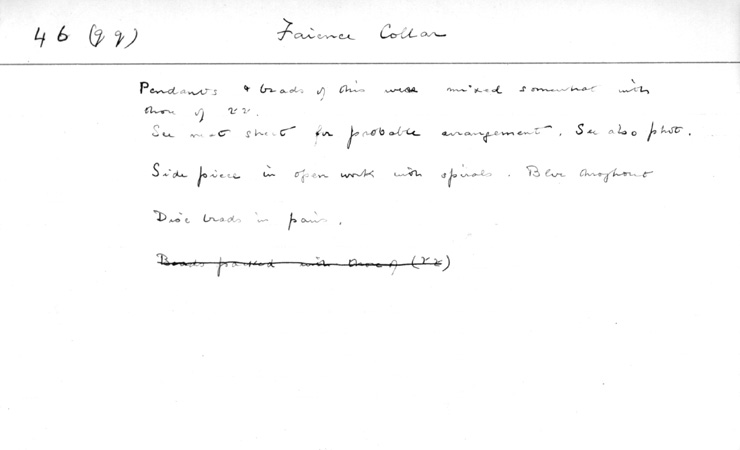 46 (qq) Faience Collar
Pendants & beads of this were mixed somewhat with
those of
See next sheet for probable arrangement. See also phot.
Side piece in open work with spirals. Blue throughout
Disc beads in pairs.
Beads packed with those of